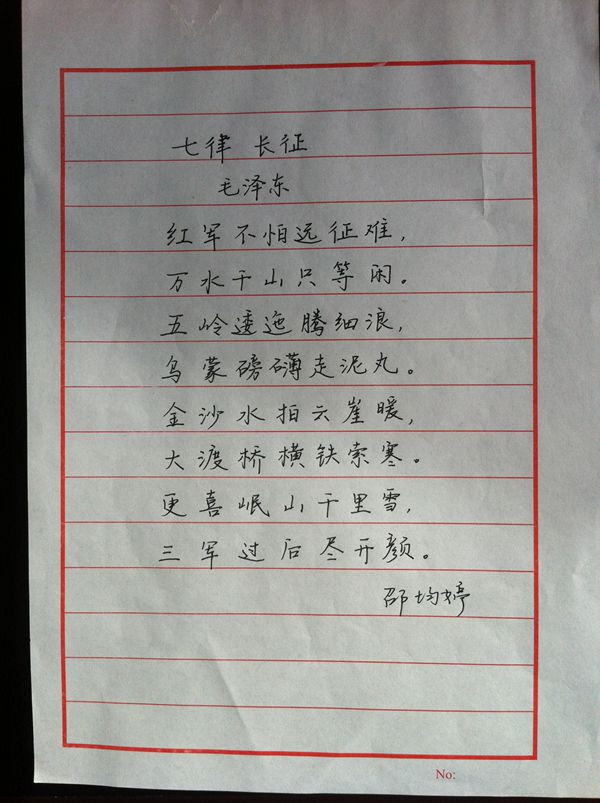 七律 长征
毛泽东
红军不怕远征难,
万水千山只等闲。
五岭逶迤腾细浪,
乌蒙磅礴走泥丸。
金沙水拍云崖暖,
大渡桥横铁索寒。
更喜岷山千里雪,
三军过后尽开颜。
邵均婷
No: